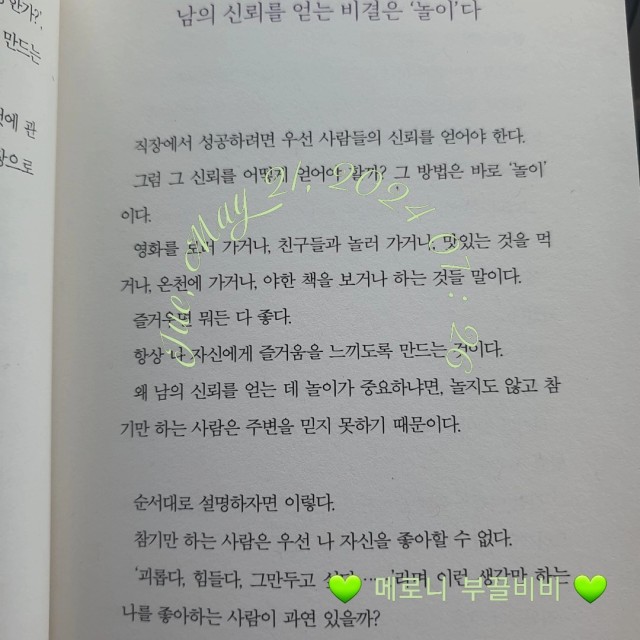 한가?',
만드는
관
으로
남의 신뢰를 얻는 비결은 '놀이'다
직장에서 성공하려면 우선 사람들의 신뢰를 얻어야 한다.
그럼 그 신뢰를 어떻게 얻어야 할까? 그 방법은 바로 '놀이'
이다.
영화를 보러 가거나, 친구들과 놀러 가거나, 맛있는 것을 먹
거나, 온천에 가거나, 야한 책을 보거나 하는 것들 말이다.
즐거우면 뭐든 다 좋다.
항상 나 자신에게 즐거움을 느끼도록 만드는 것이다.
왜 남의 신뢰를 얻는 데 놀이가 중요하냐면, 놀지도 않고 참
기만 하는 사람은 주변을 믿지 못하기 때문이다.
순서대로 설명하자면 이렇다.
참기만 하는 사람은 우선 나 자신을 좋아할 수 없다.
'괴롭다, 힘들다, 그만두고 싶다……'라며 이런 생각만 하는
나를 좋아하는 사람이 과연 있을까?
Tue, May 21, 2024 07:26
💚 메로니 부끌비바 💚